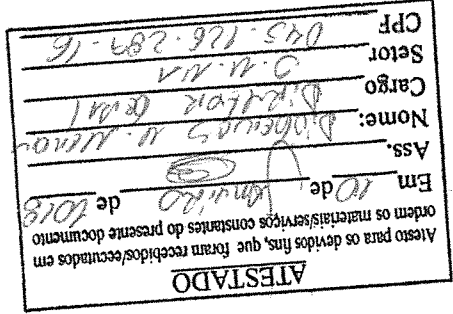 ATESTADO
Atesto para os devidos fins, que foram recebidos/executados em
ordem os materiais/serviços constantes do presente documento
Em 10 de Janeiro de 2018
Ass.
Nome: Diogenes
Cargo Diretor Geral
Setor
CPF 045.126.287-16